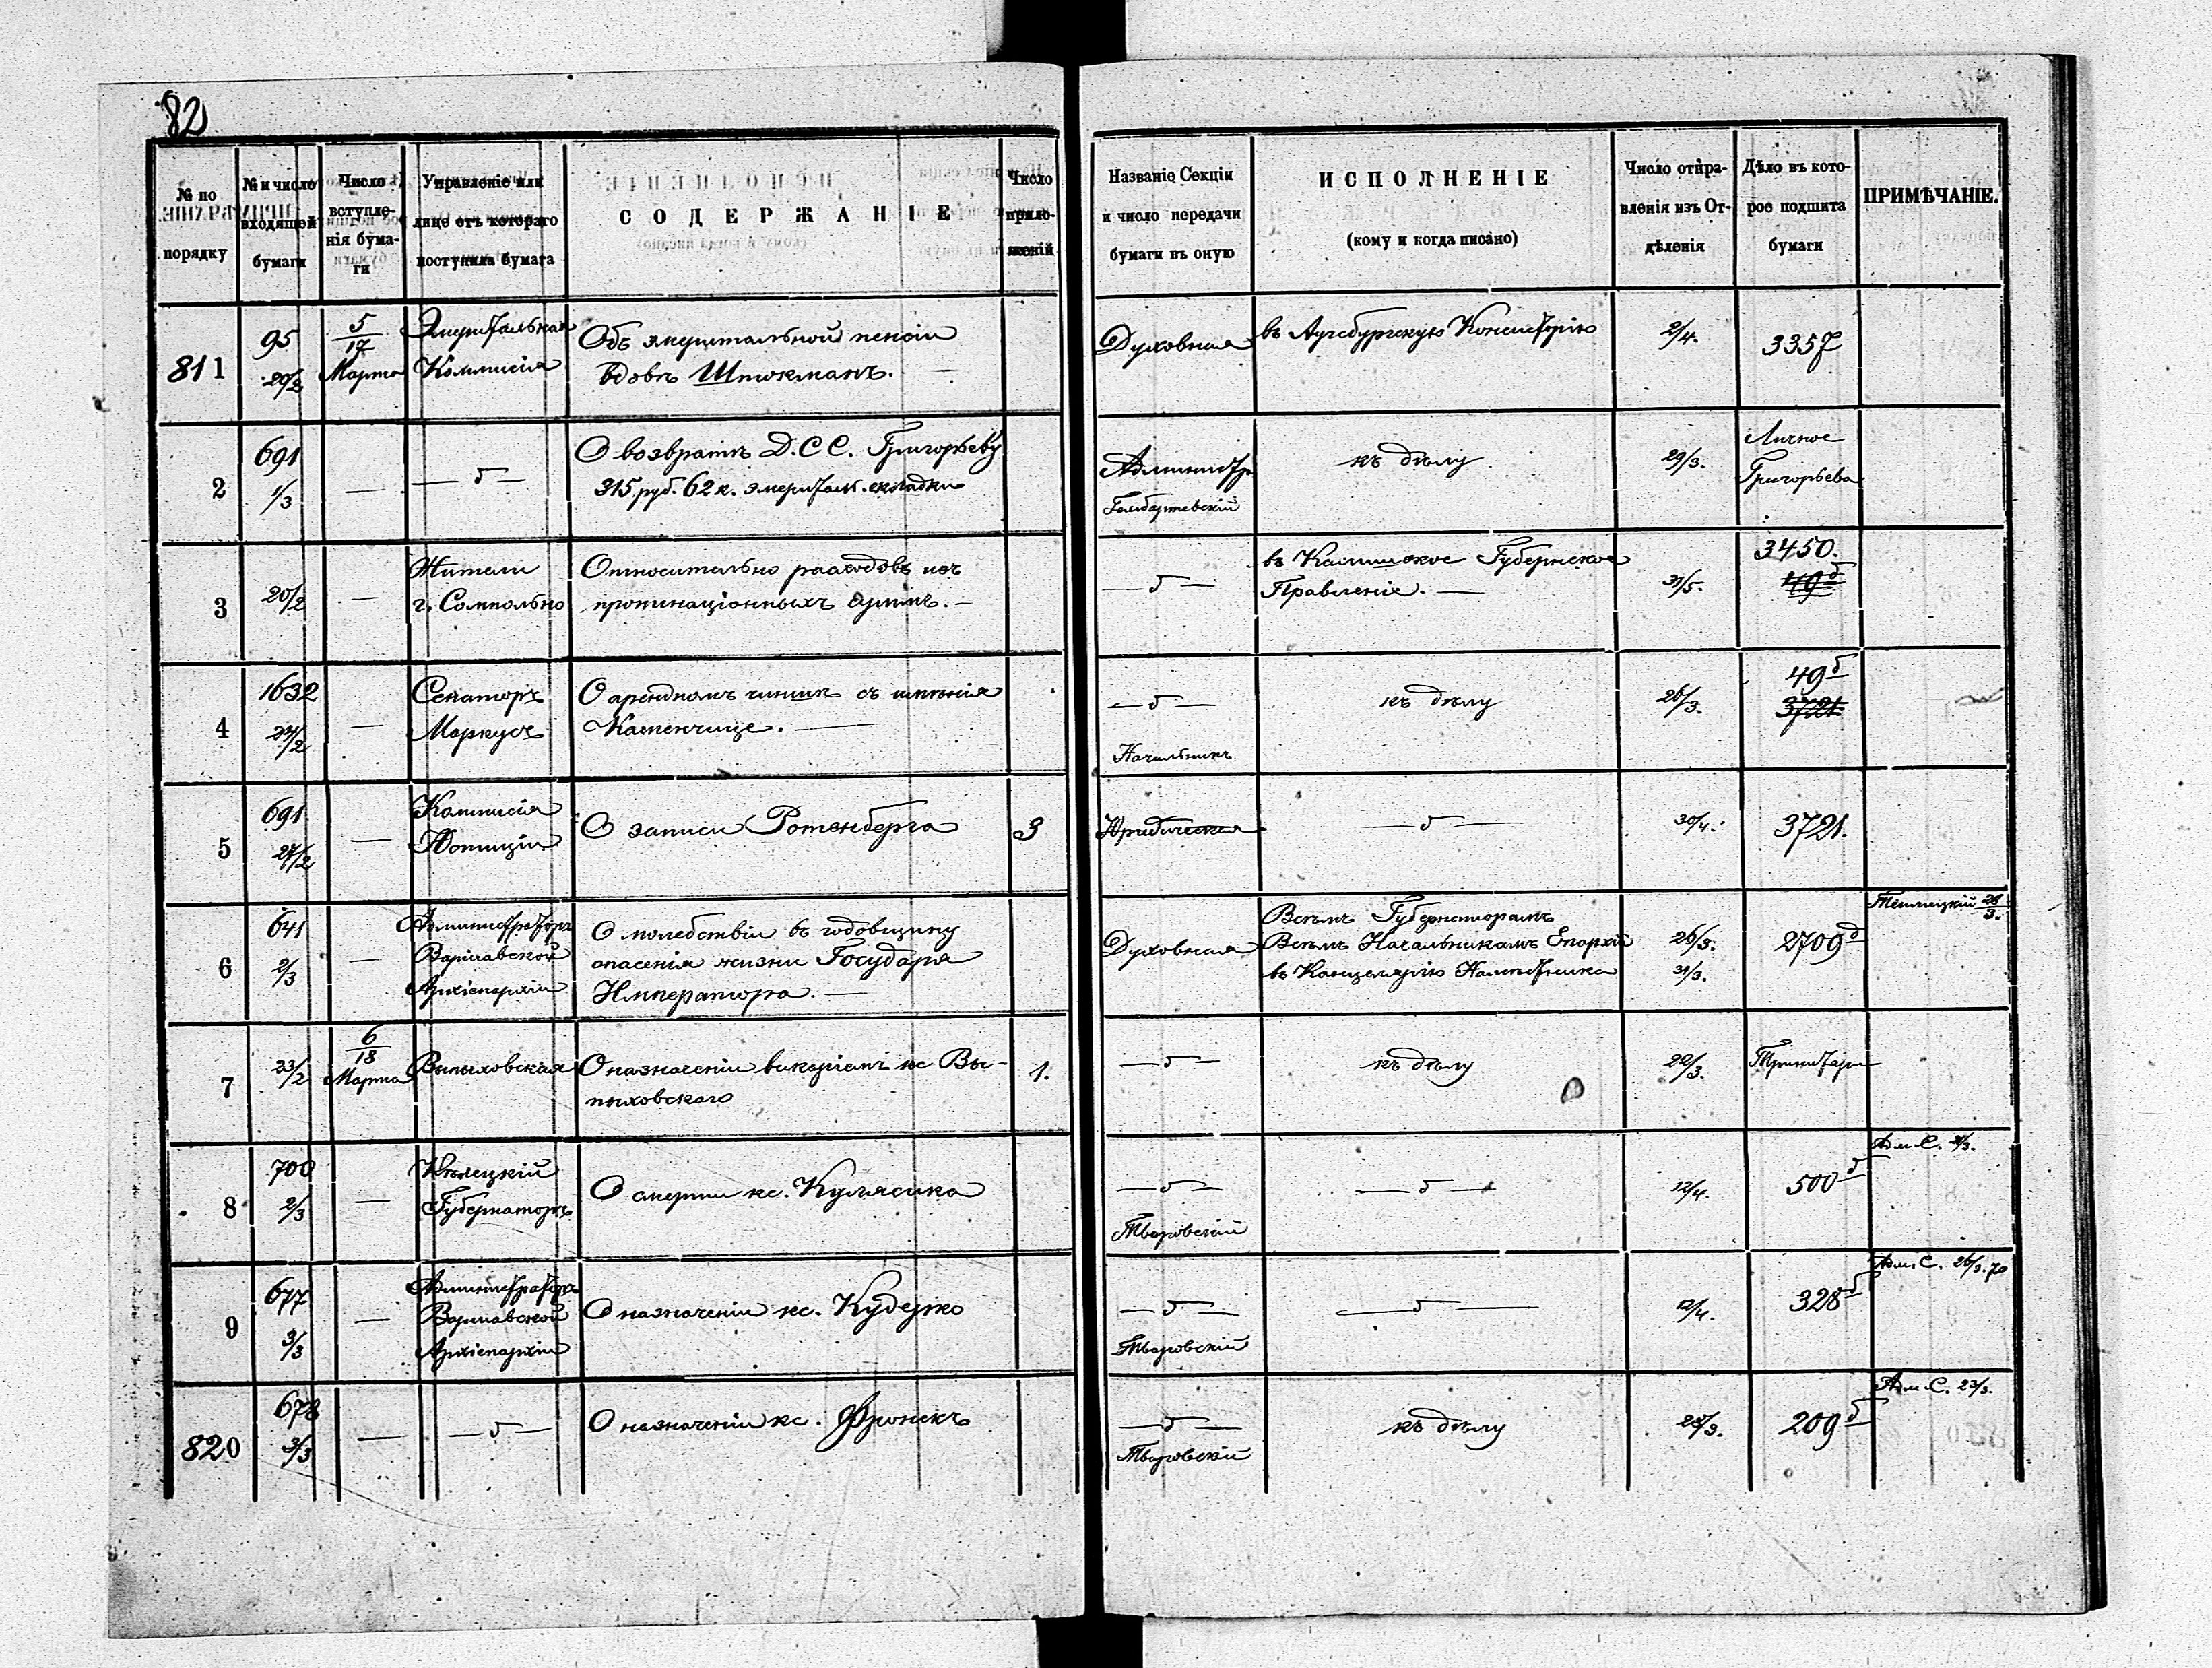 82
№ по порядку
№ и число входящей бумаги
Число вступле-
нія бума-
ги
Управленіе или
лице отъ котораго
поступила бумага
СОДЕРЖАНІЕ
Число
прило-
женій
Названіе Секціи
и число передачи
бумаги въ оную
ИСПОЛНЕНІЕ
(кому и когда писано)
Число отпра-
вленія изъ От-
дѣленія
Дѣло въ кото-
рое подшита
бумаги
ПРИМѢЧАНІЕ.
811
95
20/2
5/17
Марта
Эмеритальная
Коммисія
Объ эмеритальной пенсіи
вдовѣ Штокманъ. —
Духовная
въ Аугсбургскую Консисторію
2/4.
3357
2
691
1/3
—
— б —
О возвратѣ Д.С.С. Григорьеву
315 руб. 62 к. эмеритал. складки
Администр
къ дѣлу
29/3.
Личное
Григорьева
3
20/2
—
Жители
г. Сомпольно
Относительно расходовъ изъ
пропинаціонныхъ суммъ. —
— б —
въ Калишское Губернское
Правленіе. —
31/5.
3450.
49б
4
1632
24/2
—
Сенаторъ
Маркусъ
О арендномъ чиншѣ съ имѣнія
Каменчице. —
— б —
Начальникъ
къ дѣлу
26/3.
49б
3721
5
691
27/2
—
Коммисія
Юстиціи
О записи Ротенберга
3
Юридическая
— б —
30/4.
3721.
6
641
2/3
—
Администраторъ
Варшавской
Архіепархіи
О молебствіи въ годовщину
спасенія жизни Государя
Императора. —
Духовная
Всѣмъ Губернаторамъ
Всѣмъ Начальникамъ Епархій
въ Канцелярію Намѣстника
26/3.
31/3.
2709б
28/3.
7
23/2
6/18
Марта
Выпыховская
О назначеніи викаріемъ кс Вы-
пыховскаго
1.
— б —
къ дѣлу
22/3.
8
700
2/3
—
Кѣлецкій
Губернаторъ
О смерти кс. Кулясика
— б —
Творовскій
— б —
12/4.
500б
Адм. С.
9
677
3/3
—
Администраторъ
Варшавской
Архіепархіи
О назначеніи кс.
— б —
Творовскій
— б —
12/4.
328б
Адм. С. 26/3. 70
820
678
3/3
—
— б —
О назначеніи кс. Фронскъ
— б —
Творовскій
къ дѣлу
28/3.
209б
Адм. С. 23/3.